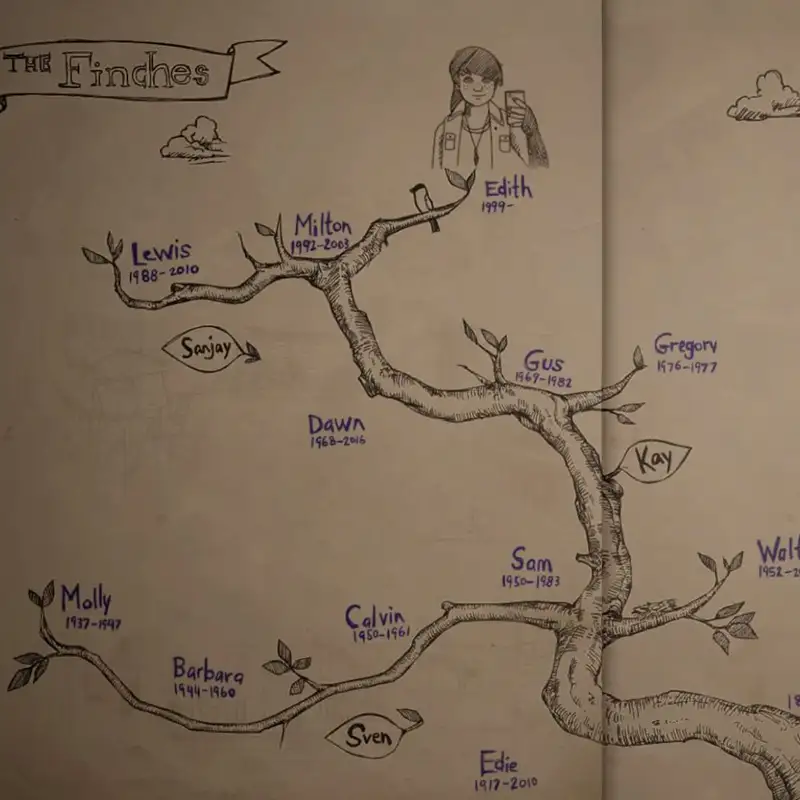 THE Finches
Edith
1999-
Milton
1992-2003
Lewis
1988-2010
Sanjay
Gus
1969-1982
Gregory
1976-1977
Dawn
1968-2016
Kay
Sam
1950-1983
Molly
1937-1947
Calvin
1950-1961
Barbara
1944-1960
Sven
Edie
1917-2010